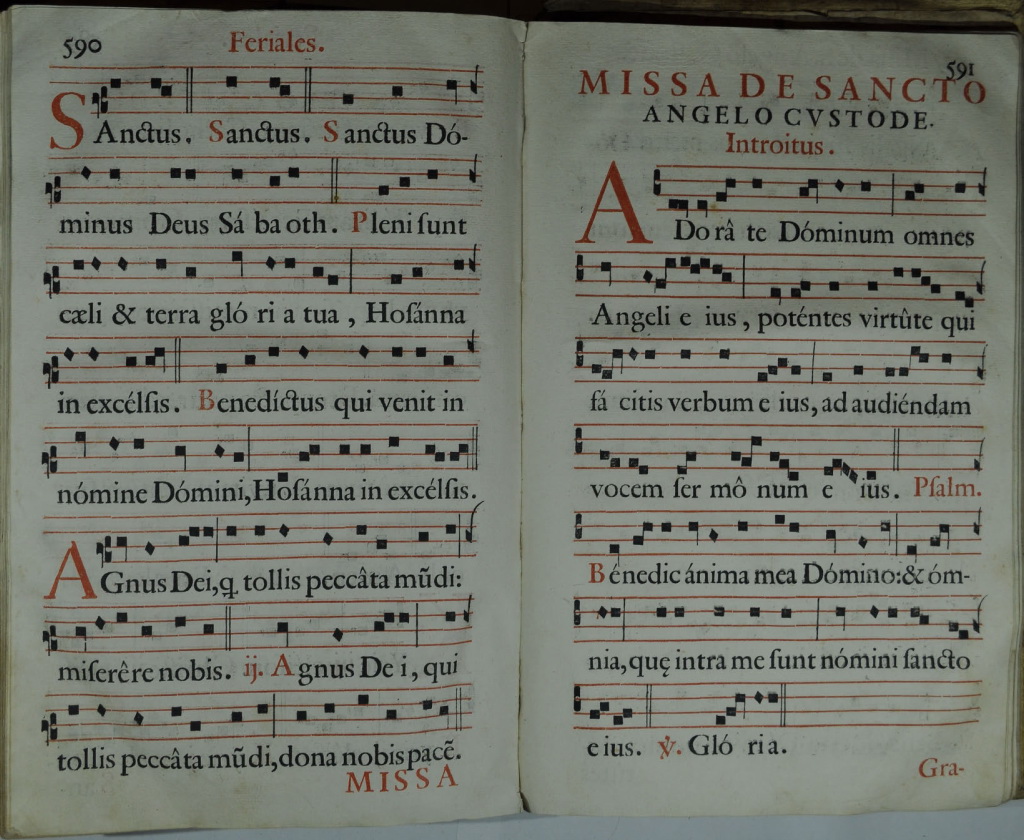 590
Feriales.
SAnctus. Sanctus. Sanctus Dó-
minus Deus Sá ba oth. Pleni ſunt
cæli & terra gló ri a tua, Hoſánna
in excélſis. Benedíctus qui venit in
nómine Dómini, Hoſánna in excélſis.
AGnus Dei, q tollis peccâta mũdi:
miſerêre nobis. ij. Agnus De i, qui
tollis peccâta mũdi, dona nobis pacẽ.
MISSA
591
MISSA DE SANCTO
ANGELO CVSTODE.
Introitus.
ADo râ te Dóminum omnes
Angeli e ius, poténtes virtûte qui
fá citis verbum e ius, ad audiéndam
vocem ſer mô num e ius. Pſalm.
Bénedic ánima mea Dómino: & óm-
nia, quę intra me ſunt nómini ſancto
e ius. ℣. Gló ria.
Gra-